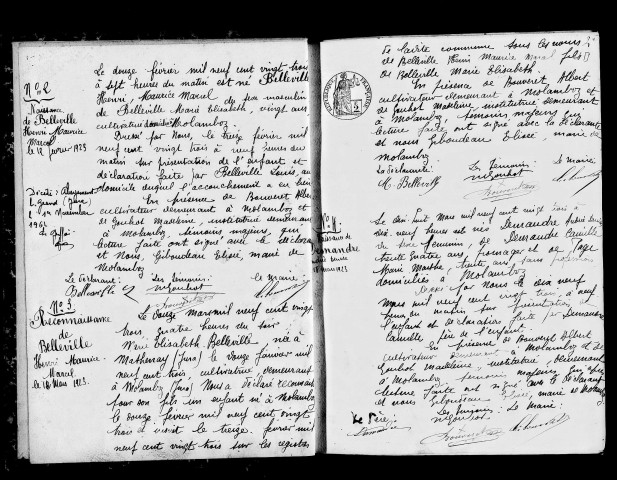 N° 2
Naissance
de Belleville
Henri, Maurice
Marcel
le 12 février 1923
Le douze février mil neuf cent vingt trois
à sept heures du matin est né Belleville
Henri, Maurice Marcel du sexe masculin
de Belleville Marie Elisabeth, vingt ans
cultivatrice domiciliée à Molamboz.
Dressé par Nous, le treize février mil
neuf cent vingt trois à neuf heures du
matin sur présentation de l'enfant et
déclaration faite par Belleville Louis, au
domicile duquel l'accouchement a eu lieu
En présence de Bouveret Albert
cultivateur demeurant à Molamboz et
de Guichot Madeleine, institutrice demeurant
à Molamboz, témoins majeurs qui
lecture faite ont signé avec le déclarant
et Nous, Giboudeau Elisée, maire de
Molamboz
Le Déclarant: Les témoins: Le Maire:
Belleville
N° 3
Reconnaissance
de
Belleville
Henri Maurice
Marcel
le 12 Mars 1923.
Le douze mars mil neuf cent vingt
trois quatre heures du soir
Marie Elisabeth Belleville née à
Mathenay (Jura) le douze janvier mil
neuf cent trois cultivatrice, demeurant
à Molamboz (Jura) Nous a déclaré reconnaître
pour son fils un enfant né à Molamboz
le douze février mil neuf cent vingt
trois et inscrit le treize février mil
neuf cent vingt trois sur les registres
de ladite commune sous les noms
de Belleville Henri Maurice Marcel fils
de Belleville Marie Elisabeth.
En présence de Bouveret Albert
cultivateur demeurant à Molamboz et
de Guichot Madeleine, institutrice demeurant
à Molamboz, témoins majeurs qui
lecture faite ont signé avec la déclarante
et nous Giboudeau Elisée, maire de
Molamboz
La déclarante: Les témoins: Le Maire:
M. Belleville
Naissance de
Demandre
mars 1923
Le dix huit Mars mil neuf cent vingt trois à
dix neuf heures est née Demandre
du sexe féminin, de Demandre Camille
trente quatre ans, fromager et de
Marie Marthe, trente ans, sans profession
domiciliés à Molamboz
Dressé par Nous le dix neuf
Mars mil neuf cent vingt trois, à neuf
heures du matin sur présentation de
l'enfant et déclaration faite par Demandre
Camille père de l'enfant.
En présence de Bouveret Albert
cultivateur demeurant à Molamboz et de
Guichot Madeleine, institutrice, demeurant
à Molamboz témoins majeurs qui
lecture faite ont signé avec le déclarant
et nous Giboudeau Elisée, maire de Molamboz
Le Père: Les témoins: Le Maire: